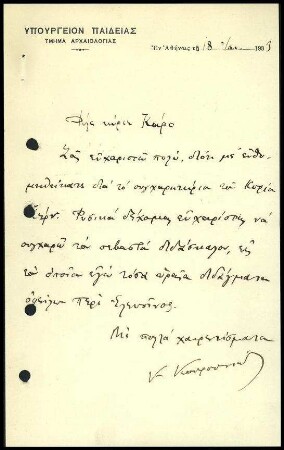 ΥΠΟΥΡΓΕΙΟΝ ΠΑΙΔΕΙΑΣ
ΤΜΗΜΑ ΑΡΧΑΙΟΛΟΓΙΑΣ
Ἐν Ἀθήναις τῇ 18 Ἰαν. 193
Φίλε κύριε Καρο
Σᾶς εὐχαριστῶ πολύ, διότι με ἐνθυ-
μηθήκατε διὰ τὸ συγχαρητήρια τοῦ Κυρίου
Φυσικὰ δέχομαι εὐχαρίστως νὰ
συγχαρῶ τὸν σεβαστὸ διδάσκαλον, εἰς
τὸν ὁποῖον ἐγὼ τόσα ὡραῖα διδάγματα
ὀφείλω περὶ Ἐλευσῖνος.
Μὲ πολλὰ χαιρετίσματα
Κ. Κουρουνιώτης